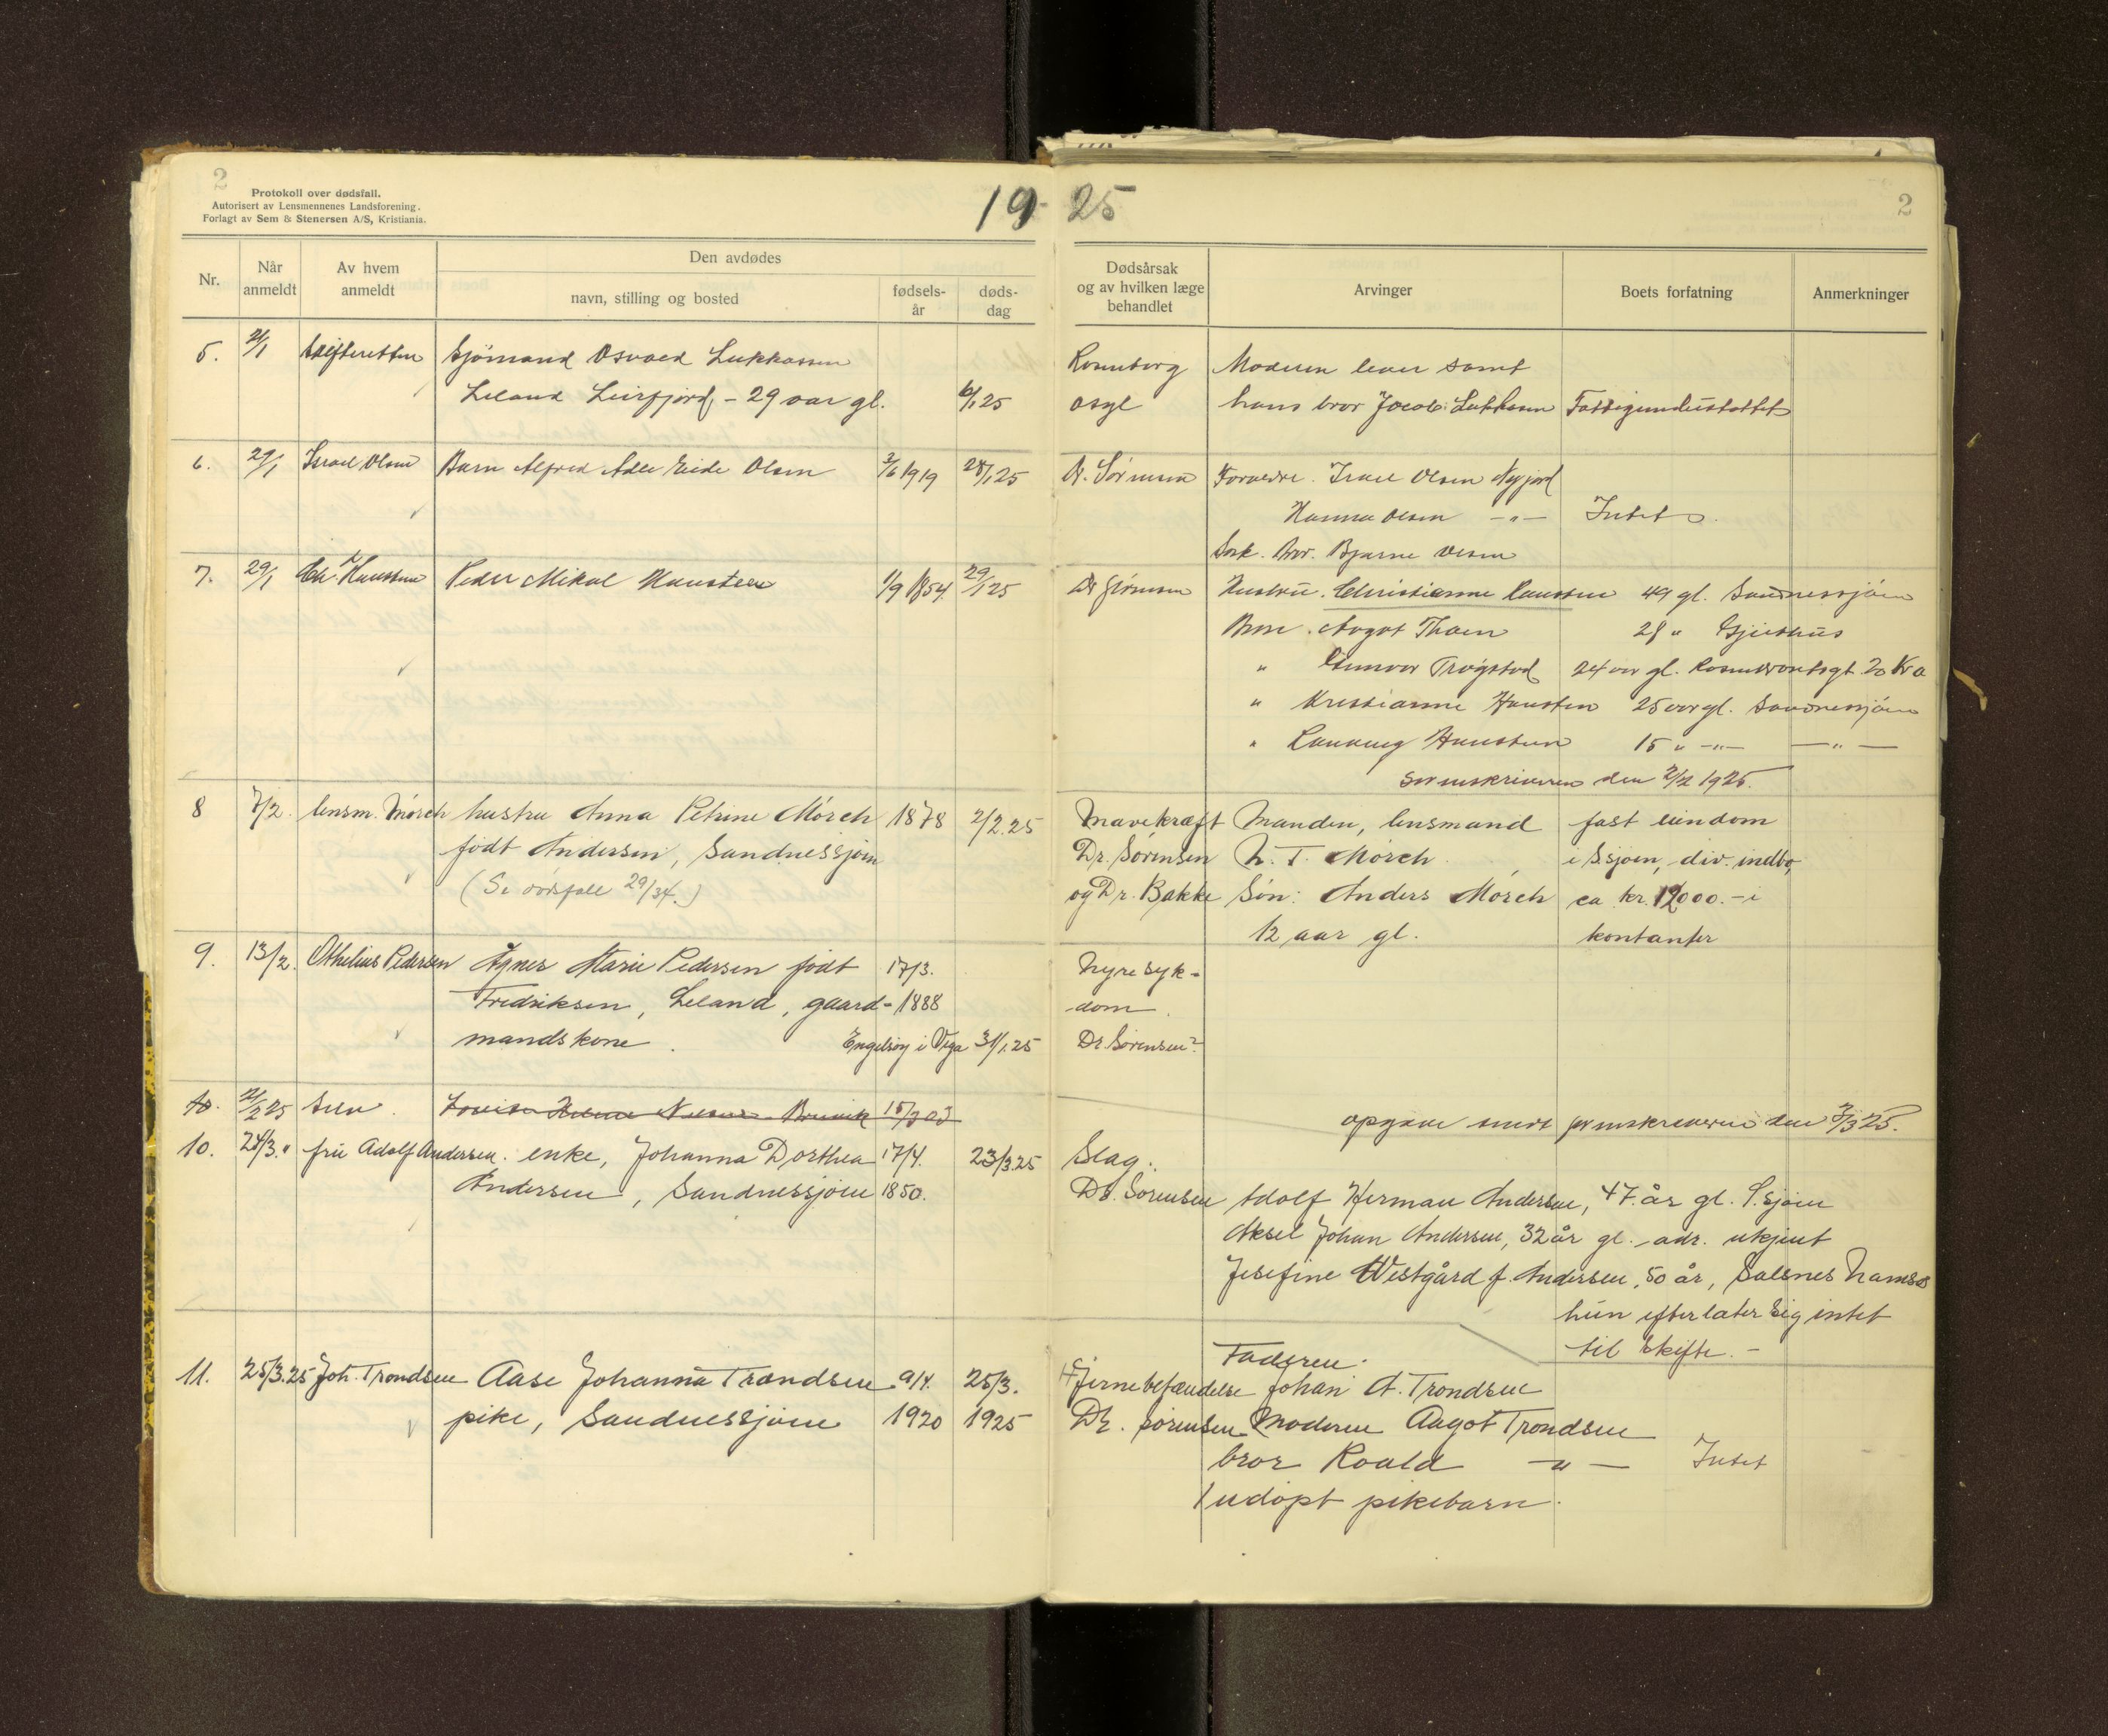 2
Protokoll over dødsfall.
Autorisert av Lensmennenes Landsforening.
Forlagt av Sem & Stenersen A/S, Kristiania.
19 25
2
Nr.
Når anmeldt
Av hvem anmeldt
Den avdødes
navn, stilling og bosted
fødsels-år
døds-dag
Dødsårsak og av hvilken læge behandlet
Arvinger
Boets forfatning
Anmerkninger
5. Skifteretten Sjömand Osvald Lukkassen Rosenborg Moderen lever samt
Leland Leirfjord, - 29 aar gl. 6/1 25 asyl hans bror Jacob Lukkassen Fattigunderstøttet
6. 29/1 Israel Olsen Barn Alfred Adle Eide Olsen 3/6 1919 28/1 25 Dr. Sørensen Forældre. Israel Olsen
Hanna Olsen -"- Intet
Søsk. Bror. Bjarne Olsen
7. 29/1 Chr. Hansteen Peder Mikal Hansteen 1/9 1854 29/1 25 Dr Sörensen Hustru. Christianne Hansteen 49 gl. Sandnessjöen
Barn. Aagot Thoen 28 "
" Gunvor Trøgstad 24 aar gl. Rosenkrantsgt. 20 Kr a
" Kristianne Hansteen 25 aar gl. Sandnessjöen
" Rannveig Hansteen 15 " -"- -"-
Sorenskriveren den 2/2 1925.
8 7/2. lensm. Mörch hustru Anna Petrine Mörch 1878 2/2.25 Mavekræft Manden, lensmand fast eiendom
født Andersen, Sandnessjøen Dr. Sørensen N. T. Mörch. i S.sjøen, div. indbo,
(Se dødsfall 29/34.) og Dr. Bakke Søn: Anders Mörch ca kr. 12000.- i
12 aar gl. kontanter
9. 13/2. Othelius Pedersen Agnes Marie Pedersen født 17/3. Nyresyk-
Fredriksen, Leland, gaard- 1888 dom.
mandskone. Engelsøy i Vega 31/1.25 Dr. Sørensen?
10. 21/2 25 Selv. Lovise Brunvik 15/3 03
opgave sendt sorenskriveren den 3/3 25.
10. 24/3. " fru Adolf Andersen. enke, Johanna Dorthea 17/4. 23/3.25 Slag.
Andersen, Sandnessjøen 1850. Dr. Sørensen Adolf Herman Andersen, 47 år gl. S.sjøen
Aksel Johan Andersen, 32 år gl. - adr. ukjent
Josefine Westgård f. Andersen, 50 år, Salsnes Namsos
hun efterlater sig intet
til skifte. -
11. 25/3.25 Joh. Trondsen Aase Johanna Trondsen 9/4. 25/3. Hjernebetændelse Faderen: Johan A. Trondsen
pike, Sandnessjøen 1920 1925 Dr. Sørensen Moderen Aagot Trondsen
bror Roald -"- Intet
1 udøpt pikebarn.